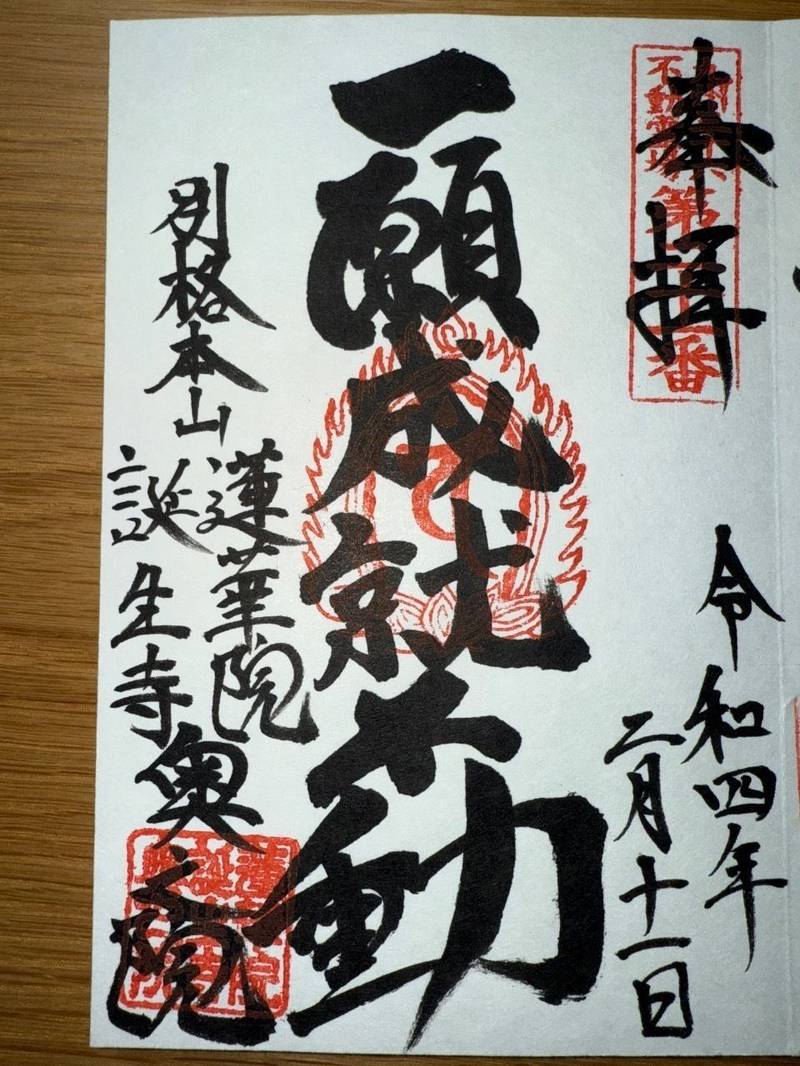 奉拝
不動霊場
第
番
令和四年
二月十一日
一願成就不動
別格本山
蓮華院
誕生寺
奥之院